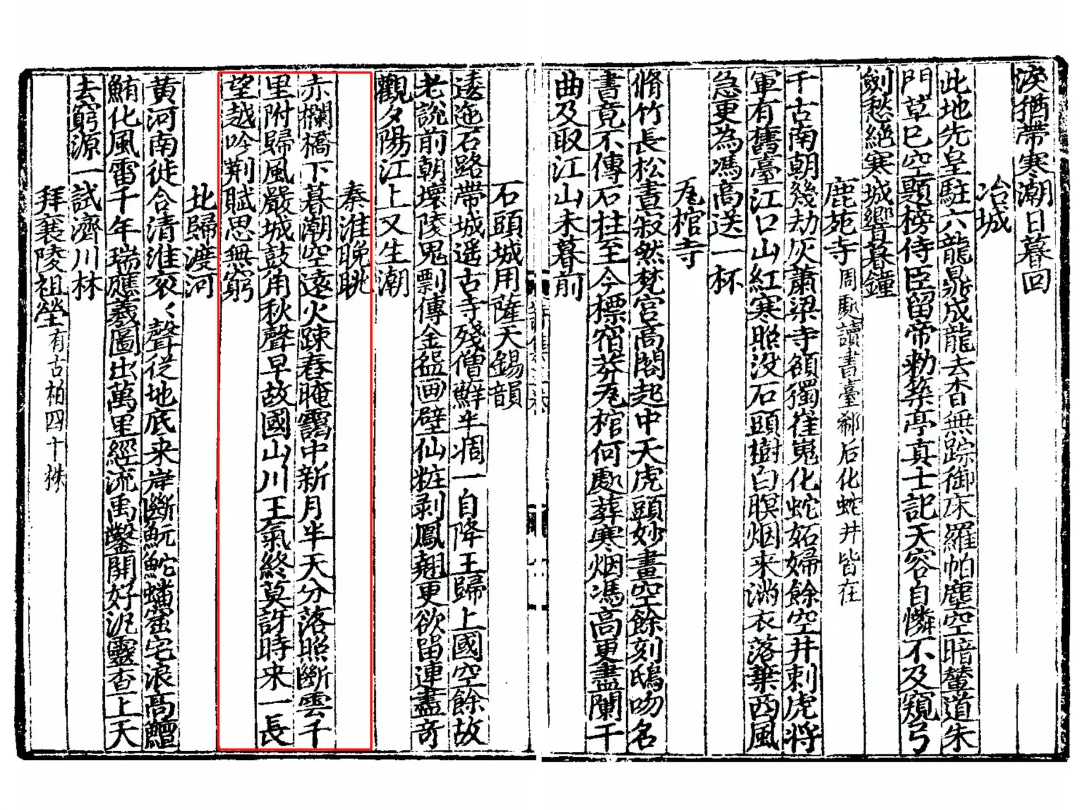 淚猶帶寒潮日暮回
冶城
此地先皇駐六龍鼎成龍去杳無踪御床羅帕塵空暗輦道朱
門草已空題榜侍臣留帝勑築亭真士記天容自憐不及窺弓
劔愁絶寒城響暮鐘
鹿苑寺 周顒讀書臺郗后化蛇井皆在
千古南朝幾劫灰蕭梁寺額獨崔嵬化蛇妬婦餘空井刺虎將
軍有舊臺江口山紅寒照没石頭樹白暝烟来滿衣落葉西風
急更為馮高送一杯
瓦棺寺
脩竹長松晝寂然梵宫高閣起中天虎頭妙畫空餘刻鴟吻名
書竟不傳石柱至今標宿莽瓦棺何處葬寒烟馮高更盡闌干
曲及取江山未暮前
石頭城用薩天錫韻
逶迤石路帶城遥古寺殘僧鮮半凋一自降王歸上國空餘故
老說前朝壞陵鬼剽傳金盌画壁仙粧剥鳳翹更欲留連盡竒
觀夕陽江上又生潮
秦淮晚眺
赤欄橋下暮潮空遠火疎舂晻靄中新月半天分落照斷雲千
里附歸風嚴城鼓角秋聲早故國山川王氣終莫訝時来一長
望越吟荆賦思無窮
北歸渡河
黄河南徙合清淮哀〻聲從地底来岸斷魭鮀蟠蜜宅浪髙鱣
鮪化風雷千年瑞應羲圖出萬里經流禹鑿開好汎靈查上天
去窮源一試濟川林
拜襄陵祖塋 有古柏四十株